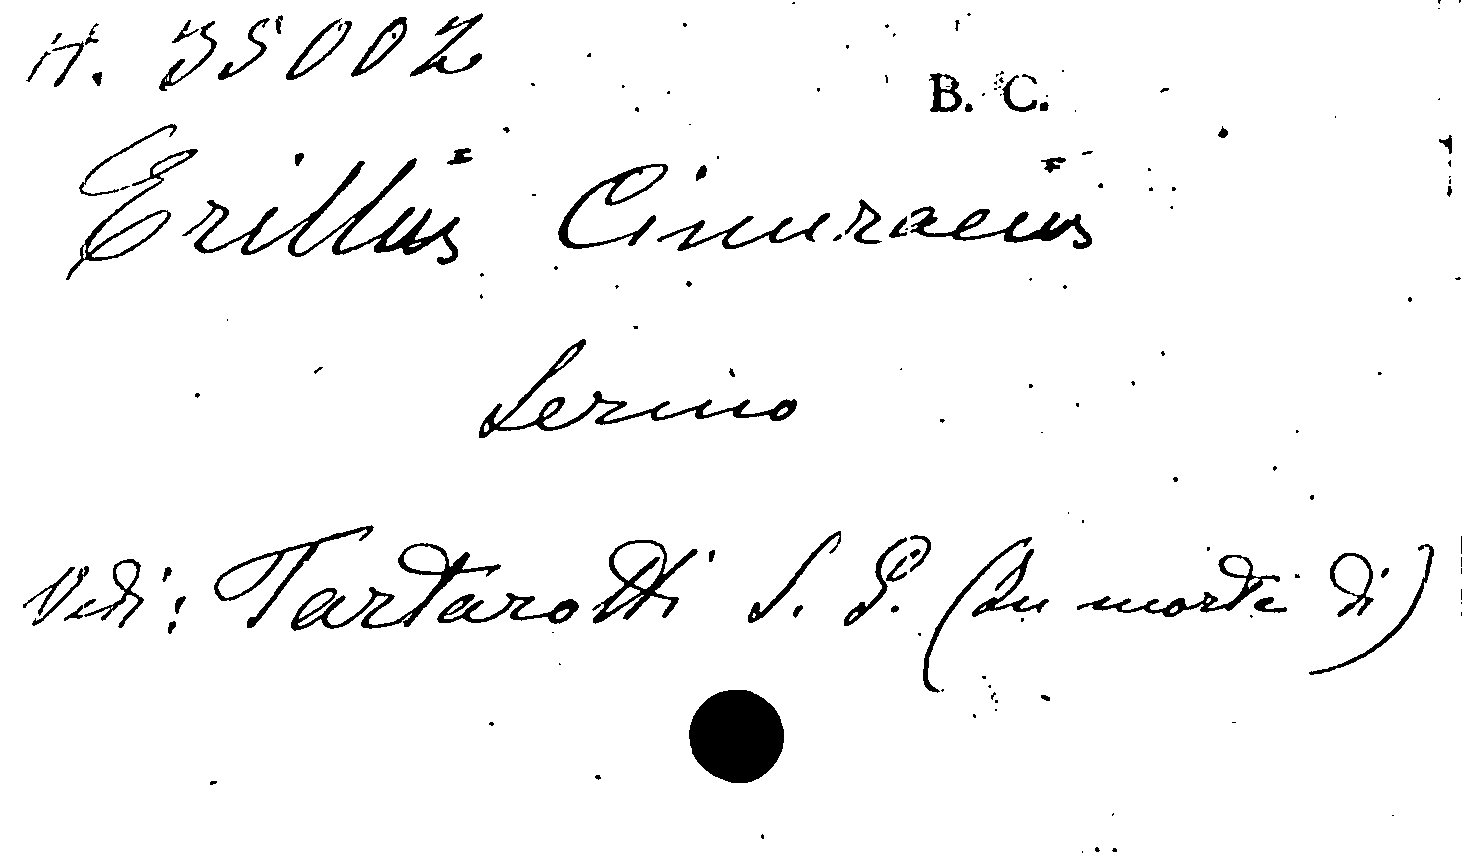 H. 35002
B. C.
Erillus Cimuracius
Sermo
Vedi: Tartarotti J. P. (In morte di)